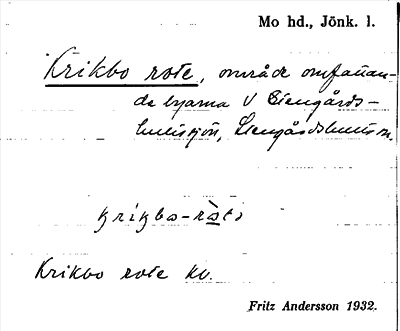 Mo hd., Jönk. l.
Krikbo rote, område omfattan-
de byarna V Stengårds-
hultsjön, Stengårdshults sn.
krikbo-ròtə
Krikbo rote kb.
Fritz Andersson 1932.